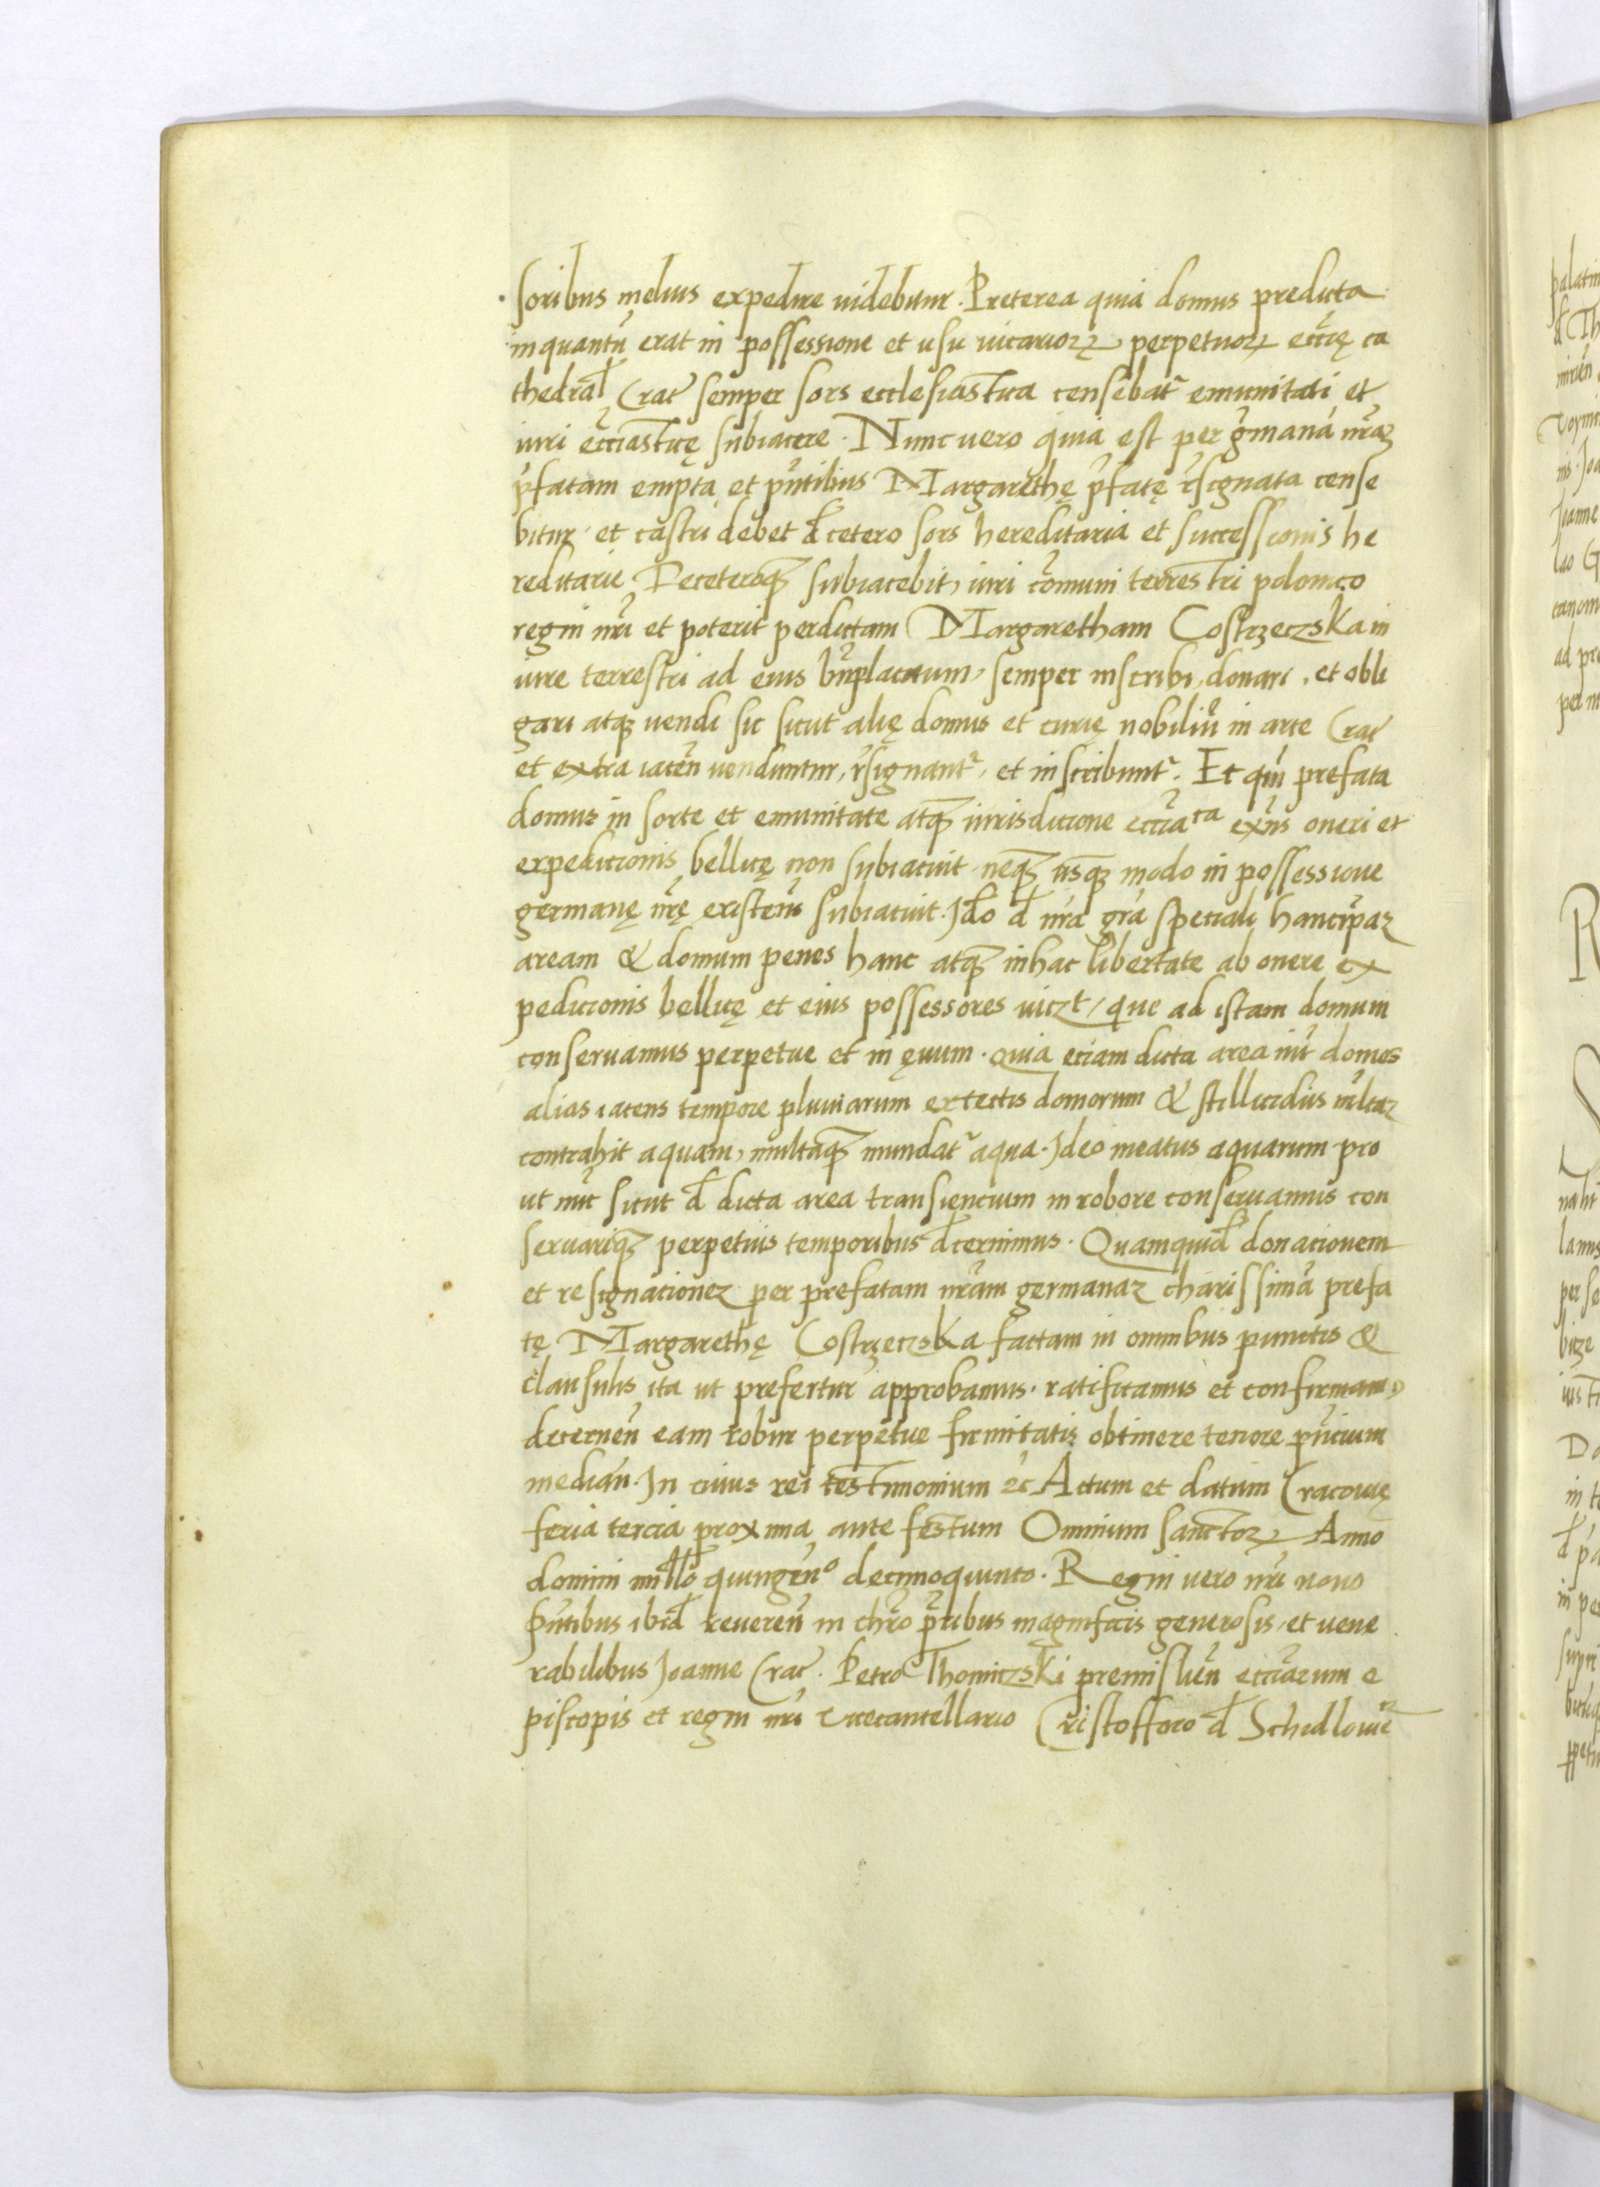 soribus melius expedire videbitur. Preterea quia domus predicta
inquantũ erat in possessione et usu vicarioꝝ perpetuoꝝ eccl̃ię ca
thedral̃ Crac̃ semper sors ecclesiastica censebat᷑ emunitati et
iuri eccl̃iasticę subiacere. Nunc vero quia est per g̃maná nr̃aʒ
p̃fatam empta et pñtibus Margarethę p̃fatę r̃signata cense
bitur et castri debet d̃ cetero sors hereditaria et successionis he
reditarie Deceteroqꝫ subiacebit, iuri cõmuni terrestri polonico
regni nr̃i et poterit perdictam Margaretham Costrzeczska in
iure terrestri ad eius bñplacitum, semper inscribi, donari, et obli
gari atqꝫ vendi sic sicut alię domus et curię nobiliũ in arce Crac̃
et extra iaceñ venduntur, r̃signant᷑, et inscribunt᷑. Et qm̃ prefata
domus in sorte et emunitate atqꝫ iurisdicione eccl̃iaᶜᵃ exñs oneri et
expedicionis bellicę non subiacuit neqꝫ usqꝫ modo in possessione
germanę nr̃ę existeñs subiacuit. Id̃o d̃ nr̃a gr̃a speciali hanc ip̃aʒ
aream & domum penes hanc atqꝫ in hac libertate ab onere ex
pedicionis bellicę et eius possessores viczt, que ad istam domum
conservamus perpetue et in ęvum. quia eciam dicta area int̃ domos
alias iacens tempore pluviarum ex tectis domorum & stillicidiis ml̃taʒ
contrahit aquam, multaqꝫ inundat᷑ aqua. Ideo meatus aquarum pro
ut nũc sicut d̃ dicta area transiencium in robore conservamus con
servariqꝫ perpetuis temporibus d̃cernimus. Quamquid̃ donacionem
et resignacioneʒ per prefatam nr̃am germanaʒ charissimã prefa
tę Margarethę Costrzeczska factam in omnibus punctis &
clausulis ita ut prefertur approbamus. ratificamus et confirmam9
decerneñ eam robur perpetue firmitatis obtinere tenore pñcium
mediañ. In cuius rei testimonium ꝛc̃ Actum et datum Cracovię
feria tercia proxima ante festum Omnium Sanctoꝝ Anno
domini mill̃o quingeñ° decimoquinto. Regni vero nr̃i nono
Pñtibus ibid̃ revereñ in chr̃o pr̃ibus magnificis generosis, et vene
rabilibus Joanne Crac̃. Petro Thomiczski premisliẽn eccl̃iarum e
piscopis et regni nr̃i vicecancellario Cristofforo d̃ Schidlowiec̃